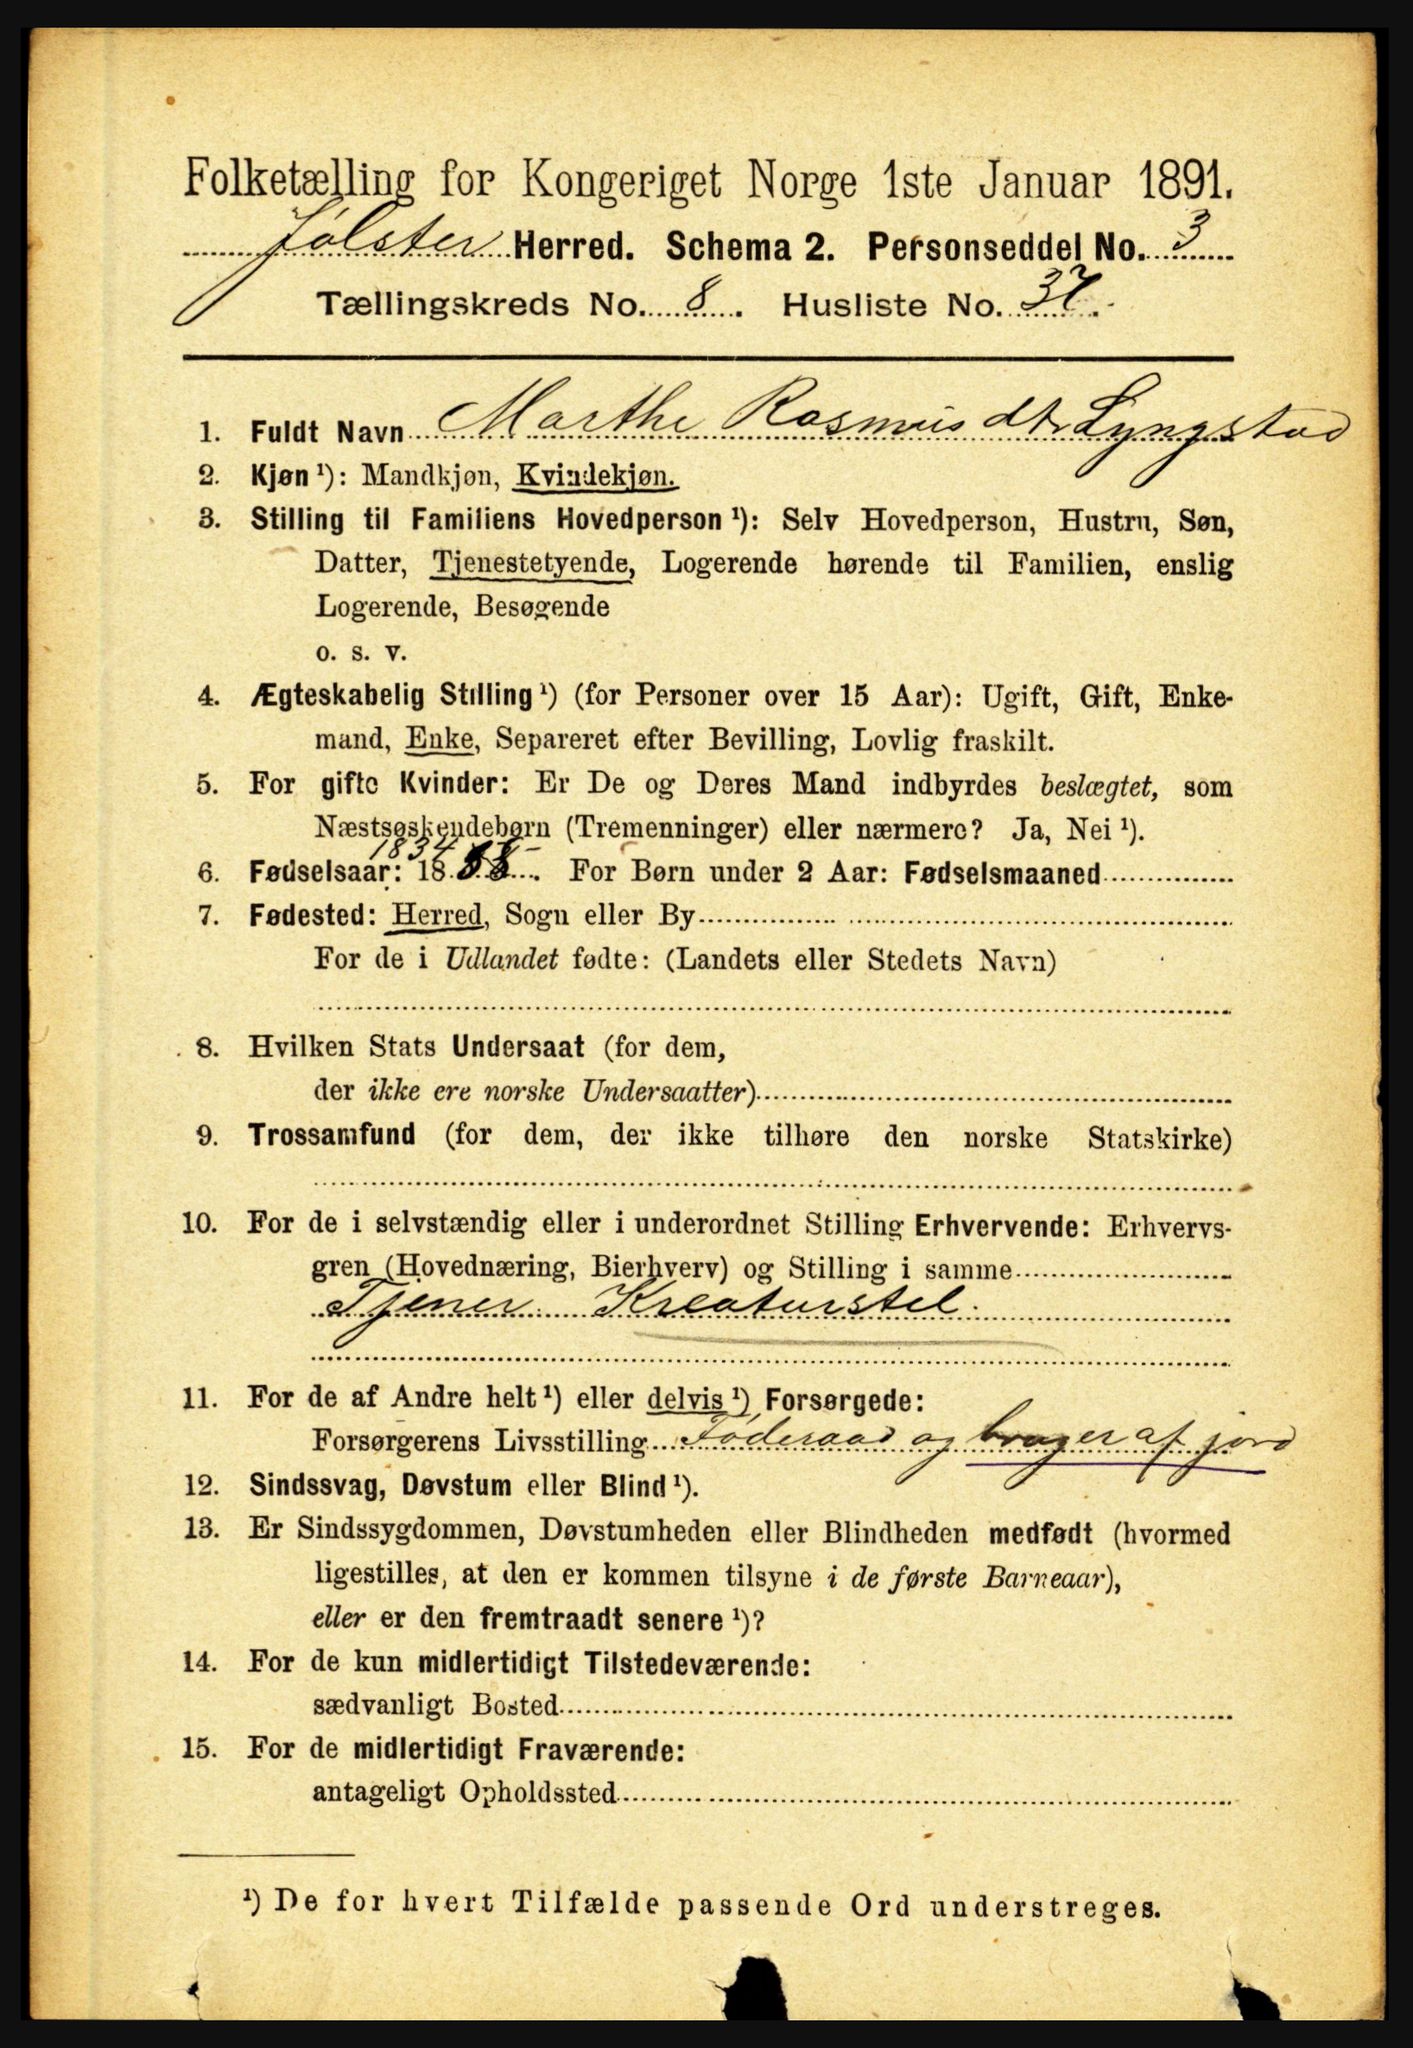 Folketælling for Kongeriget Norge 1ste Januar 1891.
Jølster Herred. Schema 2. Personseddel No. 3
Tællingskreds No. 8. Husliste No. 37.
1. Fuldt Navn Marthe Rasmusdtr Lyngstad
2. Kjøn ¹): Mandkjøn, Kvindekjøn.
3. Stilling til Familiens Hovedperson ¹): Selv Hovedperson, Hustru, Søn,
Datter, Tjenestetyende, Logerende hørende til Familien, enslig
Logerende, Besøgende
o. s. v.
4. Ægteskabelig Stilling ¹) (for Personer over 15 Aar): Ugift, Gift, Enke-
mand, Enke, Separeret efter Bevilling, Lovlig fraskilt.
5. For gifte Kvinder: Er De og Deres Mand indbyrdes beslægtet, som
Næstsøskendebørn (Tremenninger) eller nærmere? Ja, Nei ¹).
1834
6. Fødselsaar: 18 For Børn under 2 Aar: Fødselsmaaned
7. Fødested: Herred, Sogn eller By
For de i Udlandet fødte: (Landets eller Stedets Navn)
8. Hvilken Stats Undersaat (for dem,
der ikke ere norske Undersaatter)
9. Trossamfund (for dem, der ikke tilhøre den norske Statskirke)
10. For de i selvstændig eller i underordnet Stilling Erhvervende: Erhvervs-
gren (Hovednæring, Bierhverv) og Stilling i samme
Tjener Kreaturstel.
11. For de af Andre helt ¹) eller delvis ¹) Forsørgede:
Forsørgerens Livsstilling Føderaad og bruger af jord
12. Sindssvag, Døvstum eller Blind ¹).
13. Er Sindssygdommen, Døvstumheden eller Blindheden medfødt (hvormed
ligestilles, at den er kommen tilsyne i de første Barneaar),
eller er den fremtraadt senere ¹)?
14. For de kun midlertidigt Tilstedeværende:
sædvanligt Bosted
15. For de midlertidigt Fraværende:
antageligt Opholdssted
¹) De for hvert Tilfælde passende Ord understreges.